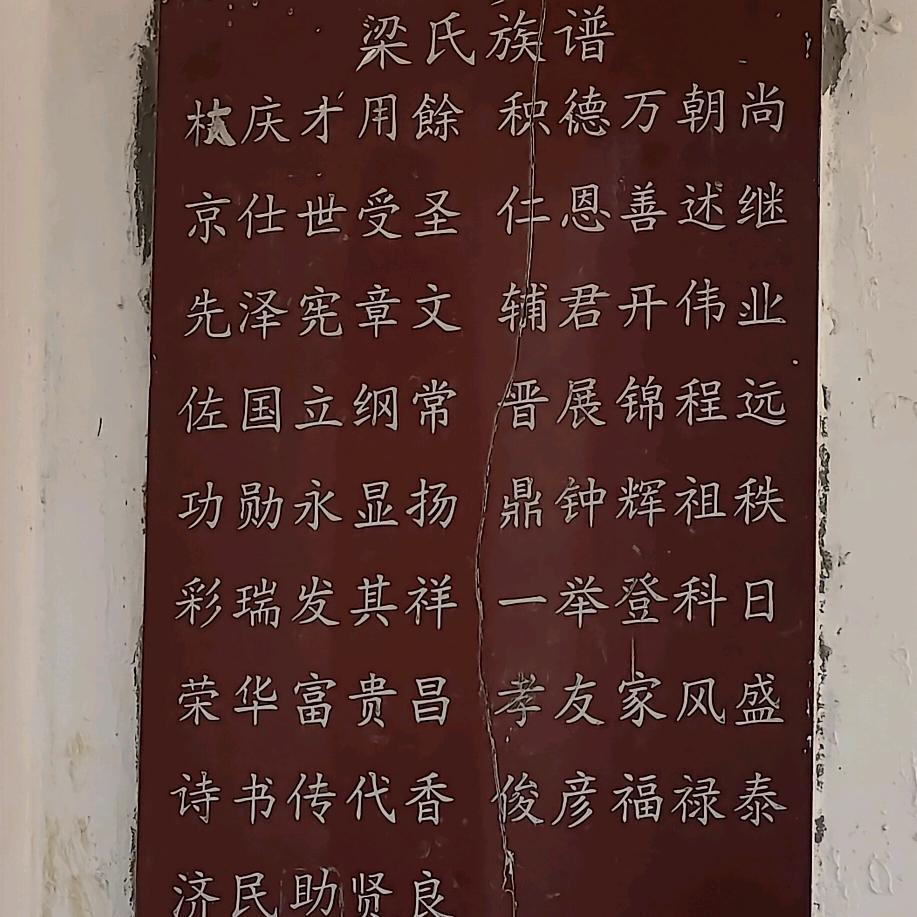 梁氏族谱
庆才用餘 秧德万朝尚
京仕世受圣 仁恩善述继
先泽宪章文 辅君开伟业
佐国立纲常 晋展锦程远
功勋永显扬 鼎钟辉祖秩
彩瑞发其祥 一举登科日
荣华富贵昌 孝友家风盛
诗书传代香 俊彦福禄泰
济民助贤良